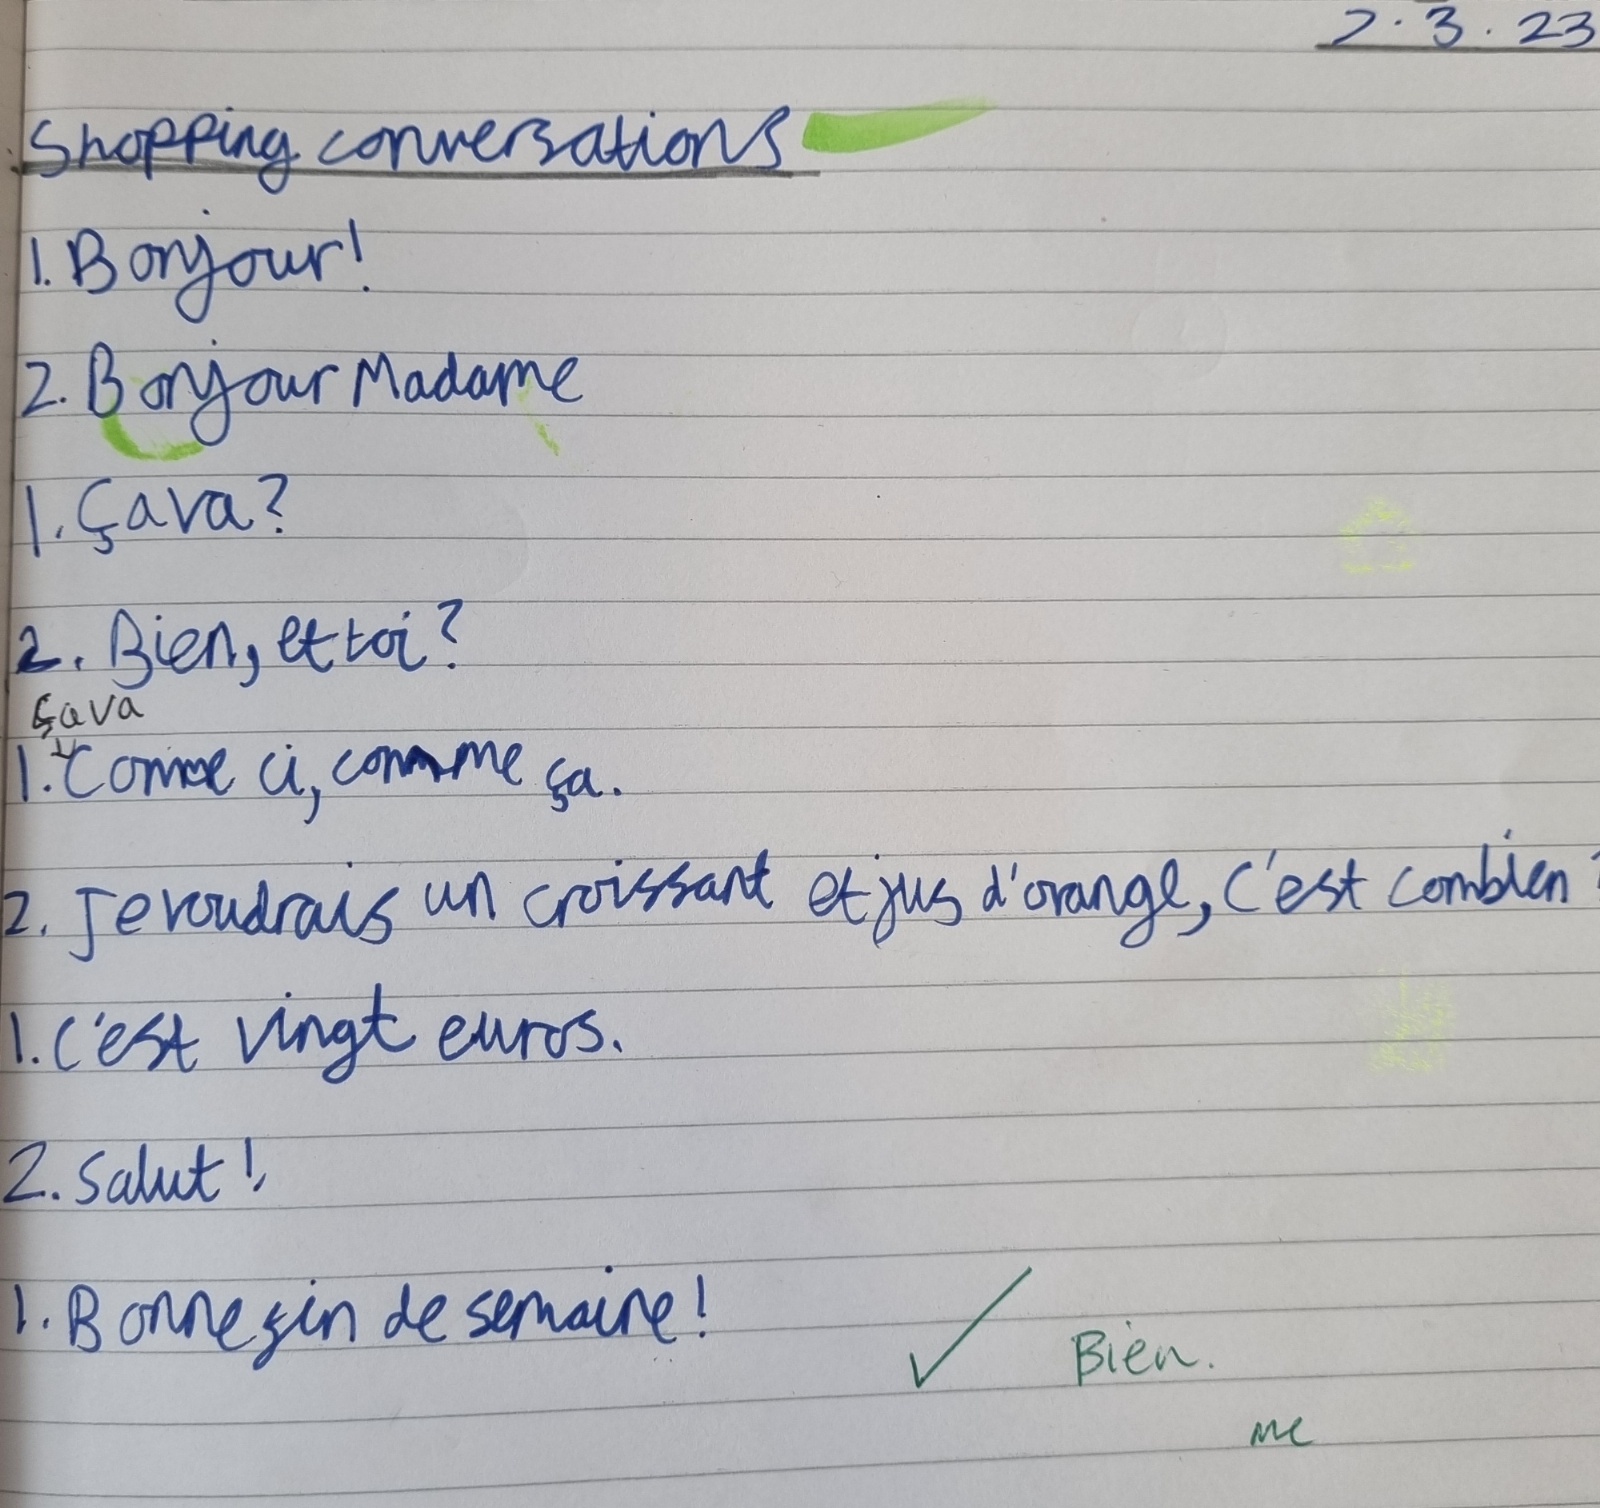 2.3.23
Shopping conversations
1. Bonjour!
2. Bonjour Madame
1. Ça va?
2. Bien, et toi?
Ça va
1. Comme ci, comme ça.
2. Je voudrais un croissant et jus d'orange, c'est combien?
1. C'est vingt euros.
2. Salut!
1. Bonne fin de semaine!
Bien.